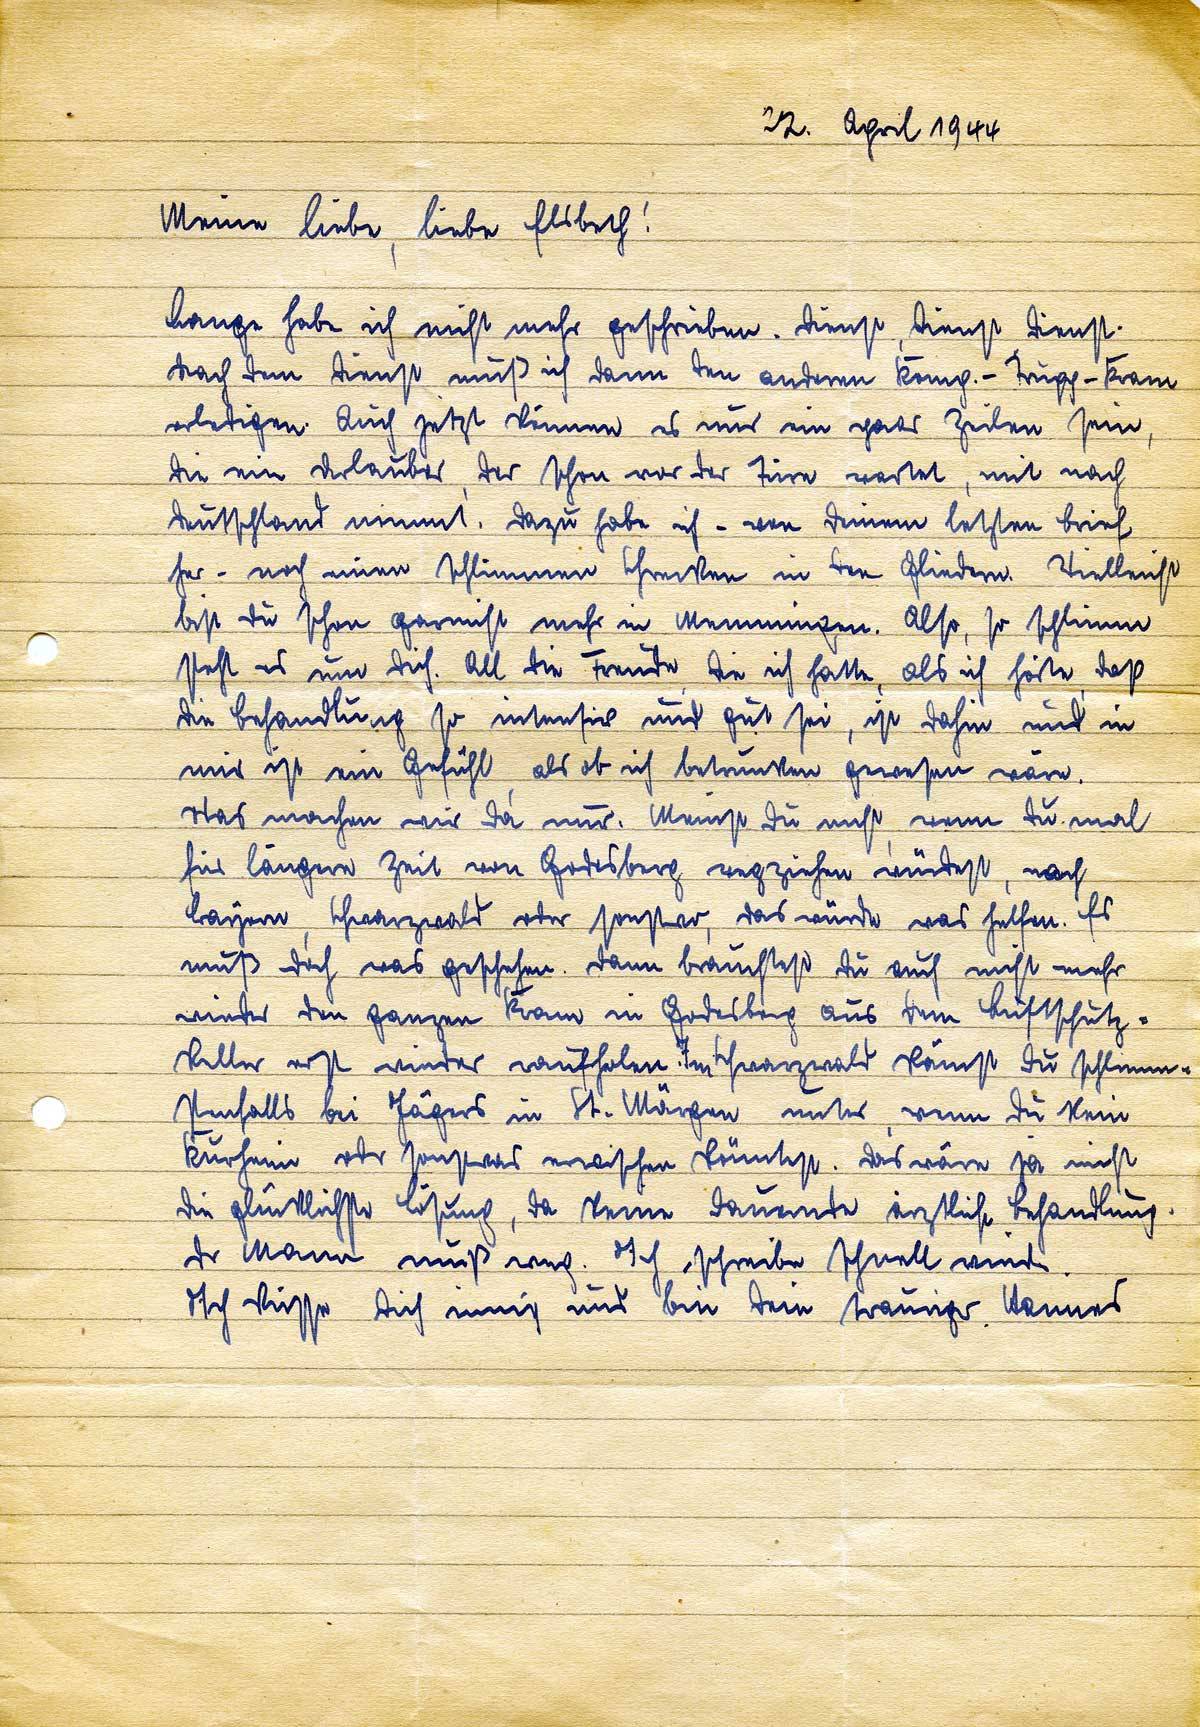 22. April 1944
Meine liebe, liebe Elsbeth!
Lange habe ich nicht mehr geschrieben. Dienst, Dienst, Dienst.
Nach dem Dienst muß ich dann den anderen Komp.-Trupp-Kram
erledigen. Auch jetzt können es nur ein paar Zeilen sein,
die ein Urlauber, der schon vor der Türe wartet, mit nach
Deutschland nimmt. Dazu habe ich - von Deinem letzten Brief
her - noch einen schlimmen Schrecken in den Gliedern. Vielleicht
bist Du schon garnicht mehr in Memmingen. Also, so schlimm
steht es um Dich. All die Freude, die ich hatte, als ich hörte, daß
die Behandlung so intensiv und gut sei, ist dahin und in
mir ist ein Gefühl, als ob ich betrunken gewesen wäre.
Was machen wir da nur. Meinst Du nicht, wenn Du mal
für längere Zeit von Godesberg wegziehen würdest, nach
Bayern, Schwarzwald oder sonstwo, das würde was helfen. Es
muß doch was geschehen. Dann brauchtest Du auch nicht mehr
wieder den ganzen Kram in Godesberg aus dem Luftschutz=
keller erst wieder raufholen. Im Schwarzwald kämst Du schlimm=
stenfalls bei Jägers in St. Märgen unter, wenn Du kein
Kurheim oder sonstwas erwischen könntest. Das wäre ja nicht
die glücklichste Lösung, da keine dauernde ärztliche Behandlung.
Der Mann muß weg. Ich schreibe schnell wieder.
Ich küsse Dich innig und bin Dein trauriger Hannes